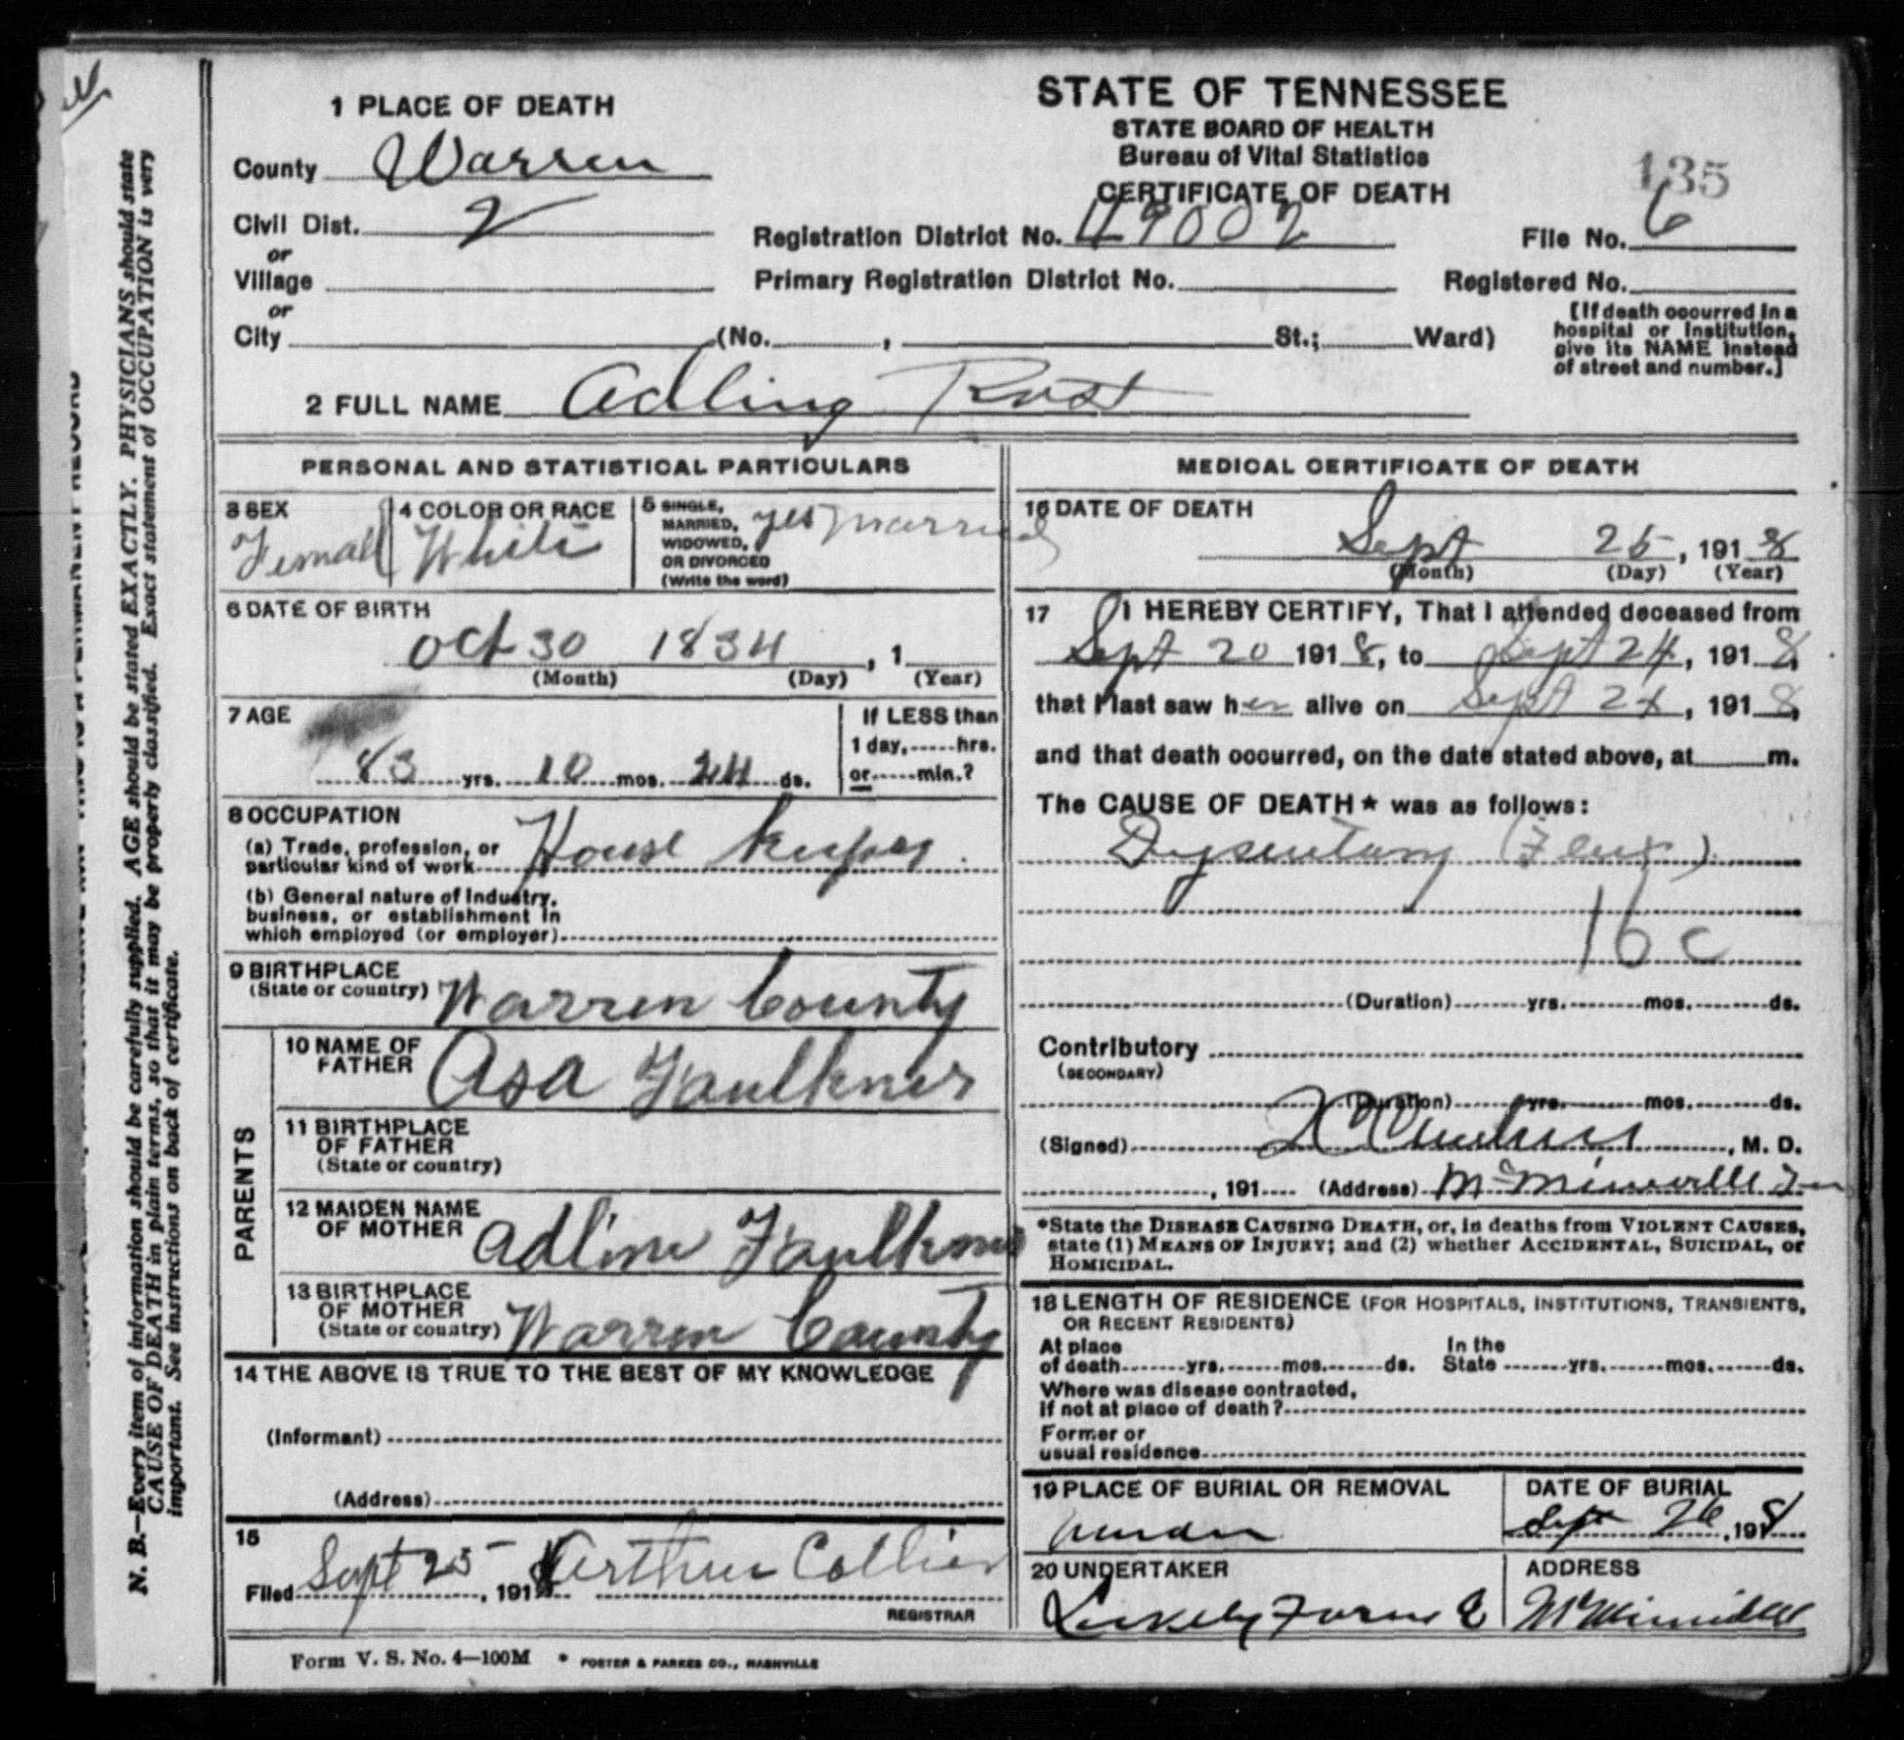 STATE OF TENNESSEE
STATE BOARD OF HEALTH
Bureau of Vital Statistics
CERTIFICATE OF DEATH
135
1 PLACE OF DEATH
County Warren
Civil Dist. 2
or
Village
or
City (No. , St.; Ward)
Registration District No. 49002
File No. 6
Primary Registration District No.
Registered No.
[If death occurred in a
hospital or institution,
give its NAME instead
of street and number.]
2 FULL NAME Adling Rust
PERSONAL AND STATISTICAL PARTICULARS
3 SEX
Femall
4 COLOR OR RACE
White
5 SINGLE,
MARRIED,
WIDOWED,
OR DIVORCED
(Write the word)
yes married
6 DATE OF BIRTH
Oct 30 1834 , 1
(Month) (Day) (Year)
7 AGE
83 yrs. 10 mos. 24 ds.
If LESS than
1 day, hrs.
or min.?
8 OCCUPATION
(a) Trade, profession, or
particular kind of work House keeper
(b) General nature of Industry,
business, or establishment in
which employed (or employer)
9 BIRTHPLACE
(State or country) Warren County
PARENTS
10 NAME OF
FATHER Asa Faulkner
11 BIRTHPLACE
OF FATHER
(State or country)
12 MAIDEN NAME
OF MOTHER Adline Faulkner
13 BIRTHPLACE
OF MOTHER
(State or country) Warren County
14 THE ABOVE IS TRUE TO THE BEST OF MY KNOWLEDGE
(Informant)
(Address)
15
Filed Sept 25 , 191 Arthur Collier
REGISTRAR
Form V. S. No. 4—100M * FOSTER & PARKES CO., NASHVILLE
MEDICAL CERTIFICATE OF DEATH
16 DATE OF DEATH
Sept 25 , 1918
(Month) (Day) (Year)
17 I HEREBY CERTIFY, That I attended deceased from
Sept 20 1918, to Sept 24, 1918,
that I last saw her alive on Sept 24, 1918,
and that death occurred, on the date stated above, at m.
The CAUSE OF DEATH* was as follows:
Dysentary (Flux)
16 c
(Duration) yrs. mos. ds.
Contributory
(SECONDARY)
(Duration) yrs. mos. ds.
(Signed) , M. D.
, 191 (Address) McMinnville Tn
*State the DISEASE CAUSING DEATH, or, in deaths from VIOLENT CAUSES,
state (1) MEANS OF INJURY; and (2) whether ACCIDENTAL, SUICIDAL, or
HOMICIDAL.
18 LENGTH OF RESIDENCE (FOR HOSPITALS, INSTITUTIONS, TRANSIENTS,
OR RECENT RESIDENTS)
At place
of death yrs. mos. ds.
In the
State yrs. mos. ds.
Where was disease contracted,
if not at place of death?
Former or
usual residence
19 PLACE OF BURIAL OR REMOVAL
DATE OF BURIAL
Sept 26, 1918
20 UNDERTAKER
ADDRESS
McMinnville
N. B.—Every item of information should be carefully supplied. AGE should be stated EXACTLY. PHYSICIANS should state
CAUSE OF DEATH in plain terms, so that it may be properly classified. Exact statement of OCCUPATION is very
important. See instructions on back of certificate.